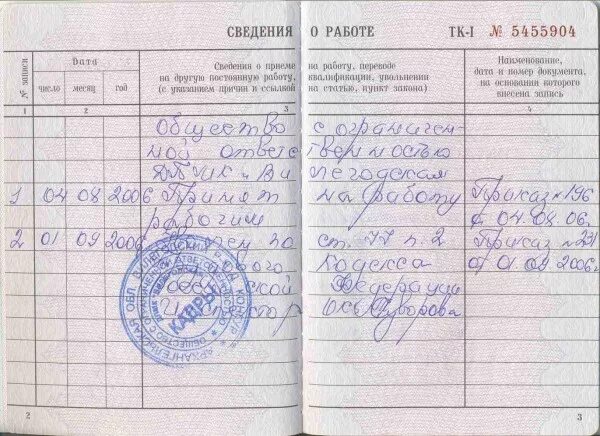 СВЕДЕНИЯ О РАБОТЕ ТК-I № 5455904
№ записи
Дата
число месяц год
Сведения о приеме на работу, переводе
на другую постоянную работу, квалификации, увольнении
(с указанием причин и ссылкой на статью, пункт закона)
Наименование,
дата и номер документа,
на основании которого
внесена запись
1 2 3 4
Общество с ограничен-
ной ответственностью
Вилегодская
1 04 08 2006 Принят на работу Приказ №196
рабочим с 04.08.06.
2 01 09 2006 по ст. 77 п. 2 Приказ №231
Кодекса от 01.09.2006г
Федерации
Суворова
КАДРЫ
АРХАНГЕЛЬСКАЯ ОБЛ.
2 3